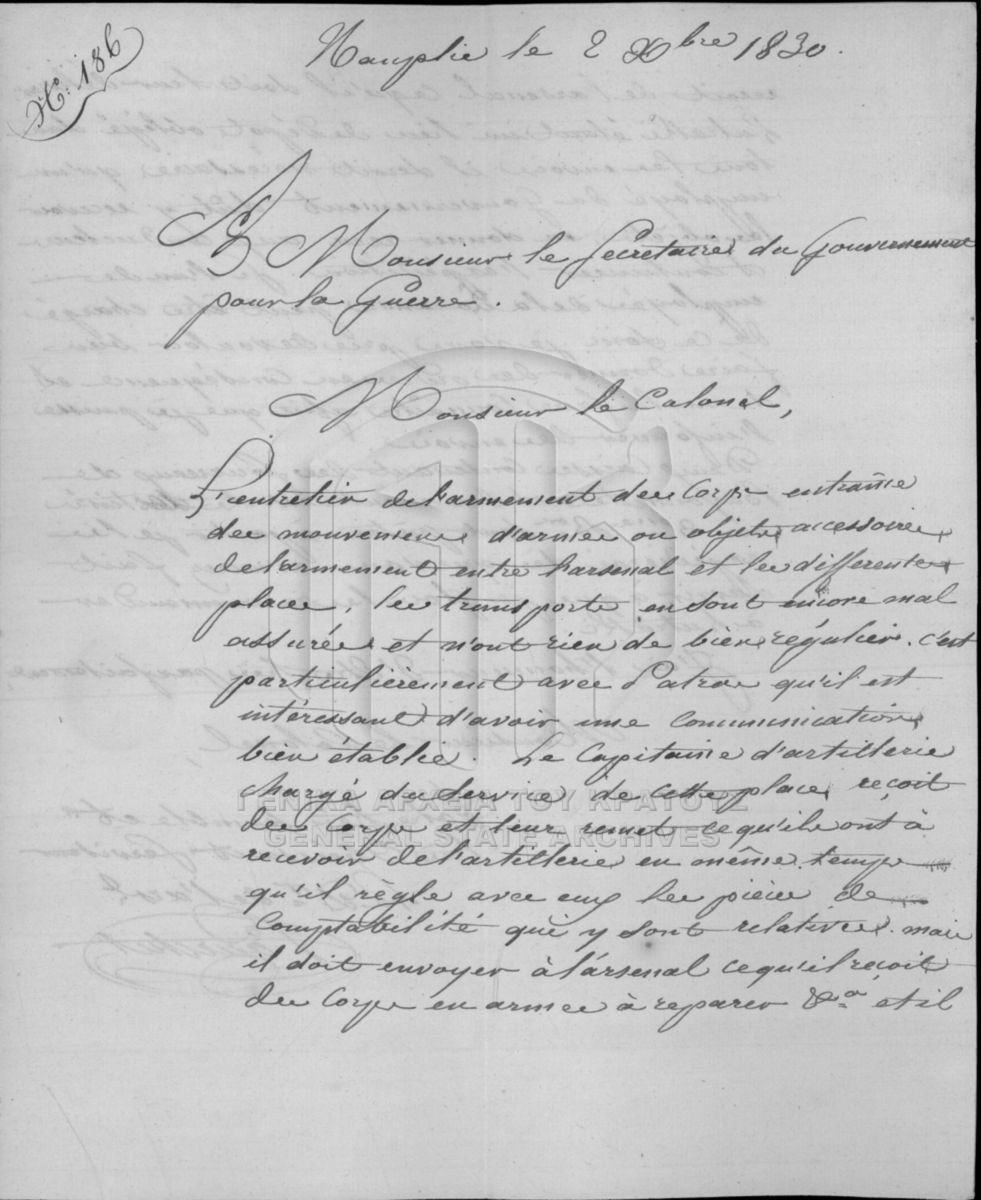 N.º 186
Nauplie le 2 Xbre 1830.
A Monsieur le Secretaire du Gouvernement
pour la Guerre.
Monsieur le Colonel,
L'entretien de l'armement des Corps entraîne
des mouvemens d'armes ou objets accessoires
de l'armement entre l'arsenal et les differentes
places, les transports en sont encore mal
assurés et n'ont rien de bien régulier. c'est
particulièrement avec Patras qu'il est
intéressant d'avoir une communication
bien établie. Le Capitaine d'artillerie
chargé du Service de cette place reçoit
des Corps et leur remet ce qu'ils ont à
recevoir de l'artillerie en même temps
qu'il règle avec eux les pièces de
Comptabilité qui y sont relatives. mais
il doit envoyer à l'arsenal ce qu'il reçoit
des Corps en armes à reparer &a. et il
ΓΕΝΙΚΑ ΑΡΧΕΙΑ ΤΟΥ ΚΡΑΤΟΥΣ
GENERAL STATE ARCHIVES